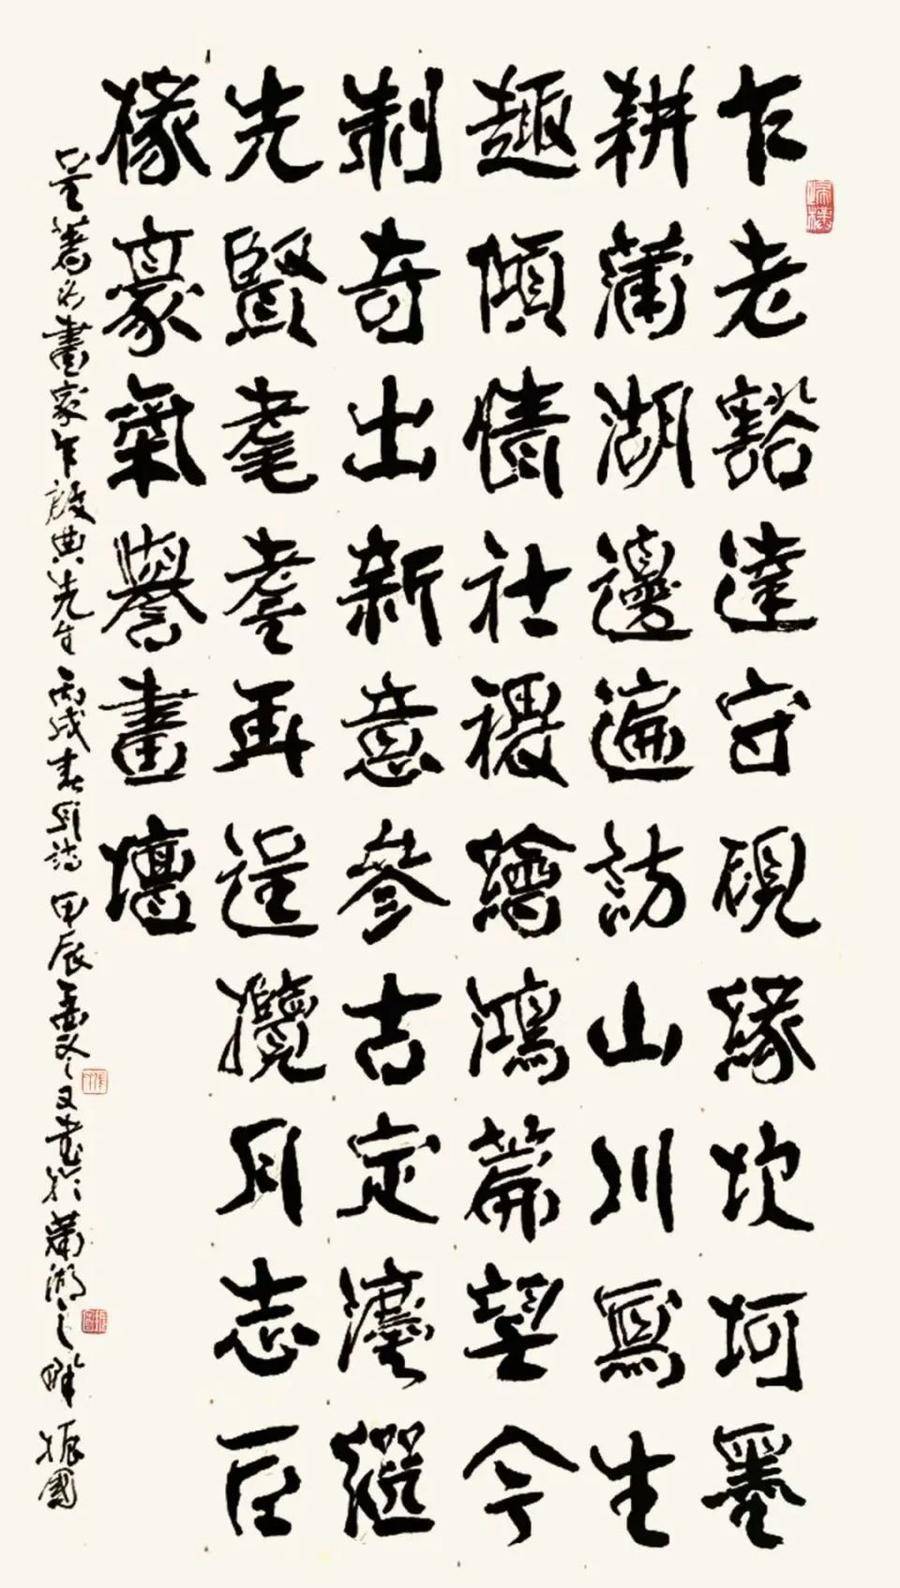 乍老豁達守硯緣坎坷墨
耕蒲湖邊遍訪山川寫生
趣傾情社稷繪鴻篇望今
制奇出新意參古定灋繼
先賢耄耋再逞攬月志巨
椽豪氣譽畫壇
呈著名畫家乍啟典先生丙戌春月詩甲辰孟冬又書於蒲湖之畔振國